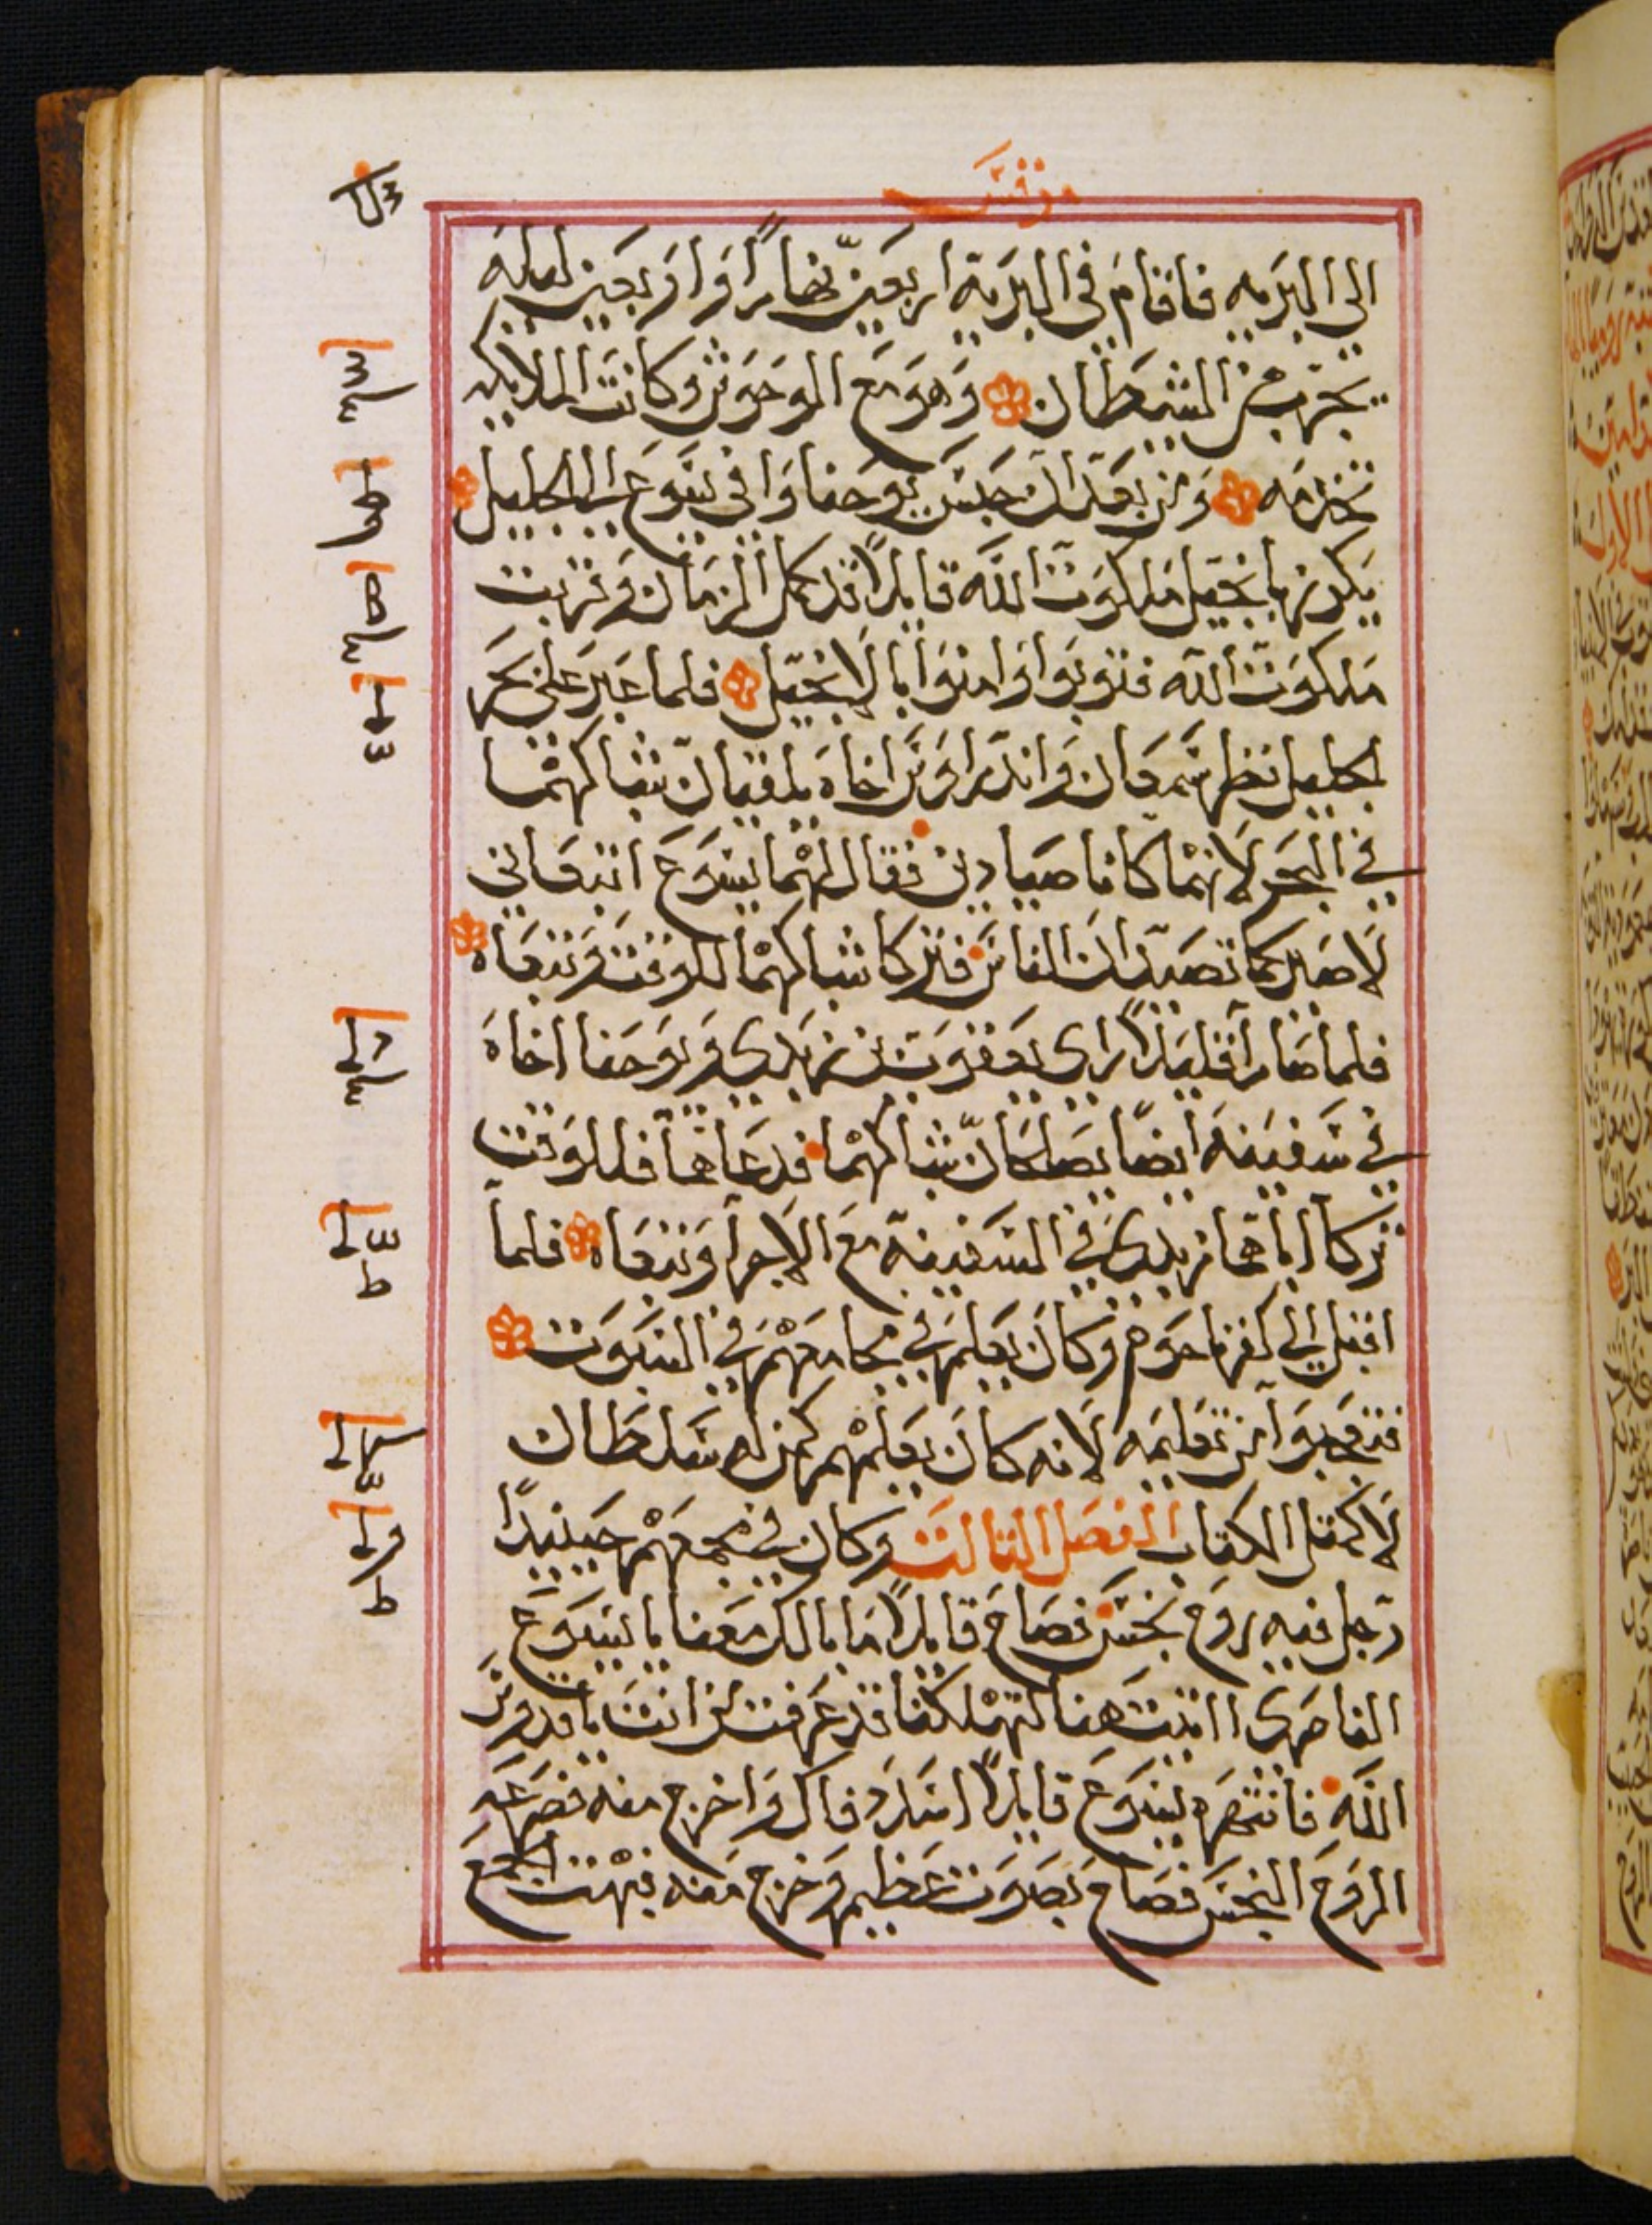 مرقس
الى البريه فاقام في البرية اربعين نهارًا واربعين ليله
يجرب من الشيطان وهو مع الوحوش وكانت الملايكه
تخدمه ومن بعد ان حبس يوحنا وافى يسوع الى الجليل
يكرز بانجيل ملكوت الله قايلًا قد كمل الزمان وقربت
ملكوت الله فتوبوا وامنوا بالانجيل فلما عبر على بحر
الجليل نظر سمعان واندراوس اخاه يلقيان شباكهما
في البحر لانهما كانا صيادين فقال لهما يسوع اتبعاني
لاصيركما تصيدان الناس فتركا شباكهما للوقت وتبعاه
فلما صارا قليلًا راى يعقوب بن زبدى ويوحنا اخاه
في سفينة ايضًا يصلحان شباكهما فدعاهما فللوقت
تركا اباهما زبدى في السفينة مع الاجرا وتبعاه فلما
اقبل الى كفرناحوم وكان يعلم في مجامعهم في السبوت
فتعجبوا من تعليمه لانه كان يعلمهم كمن له سلطان
لا كمثل الكتاب الفصل الثالث وكان في مجمعهم حينيدًا
رجل فيه روح نجس فصاح قايلًا ما بالك معنا يا يسوع
الناصرى اتيت هنا لتهلكنا قد عرفت من انت يا قدوس
الله فانتهره يسوع قايلًا اسدد فاك واخرج منه فصرعه
الروح النجس فصاح بصوت عظيم وخرج منه فبهت الجمع